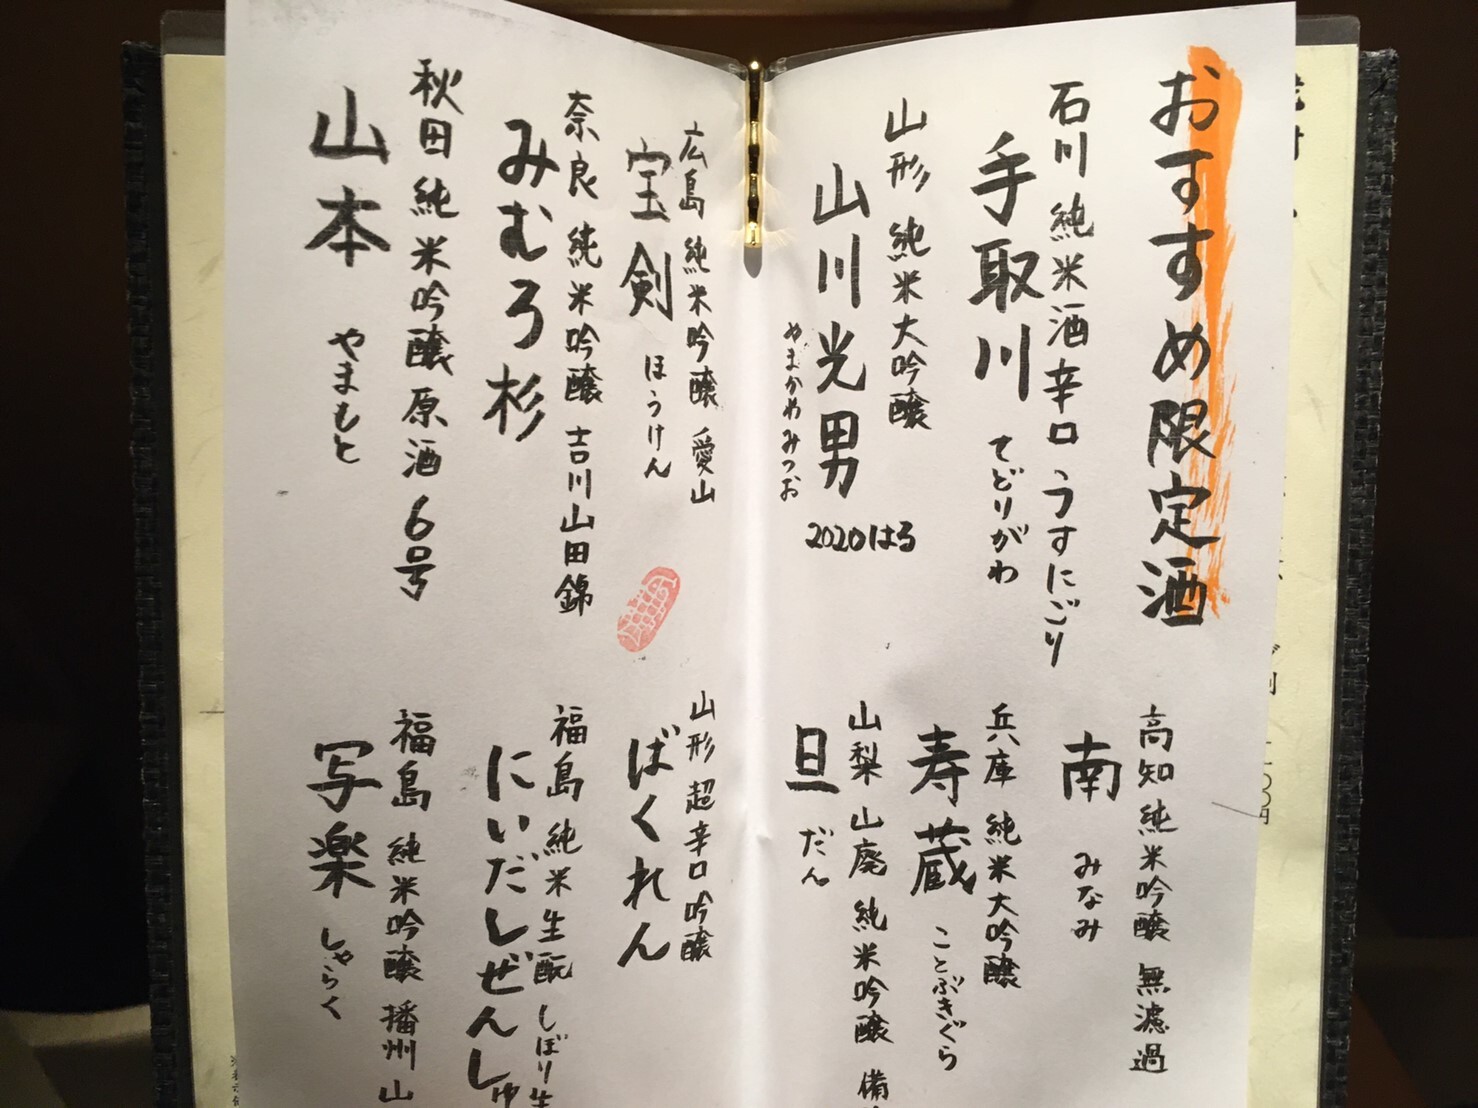 おすすめ限定酒
石川 純米酒辛口 うすにごり
手取川 てどりがわ
山形 純米大吟醸
山川光男 2020はる
やまかわみつお
広島 純米吟醸 愛山
宝剣 ほうけん
奈良 純米吟醸 吉川山田錦
みむろ杉
秋田 純米吟醸原酒 6号
山本 やまもと
高知 純米吟醸 無濾過
南 みなみ
兵庫 純米大吟醸
寿蔵 ことぶきぐら
山梨 山廃 純米吟醸 備
旦 だん
山形 超辛口吟醸
ばくれん
福島 純米生酛 しぼり生
にいだしぜんしゅ
福島 純米吟醸 播州山
写楽 しゃらく